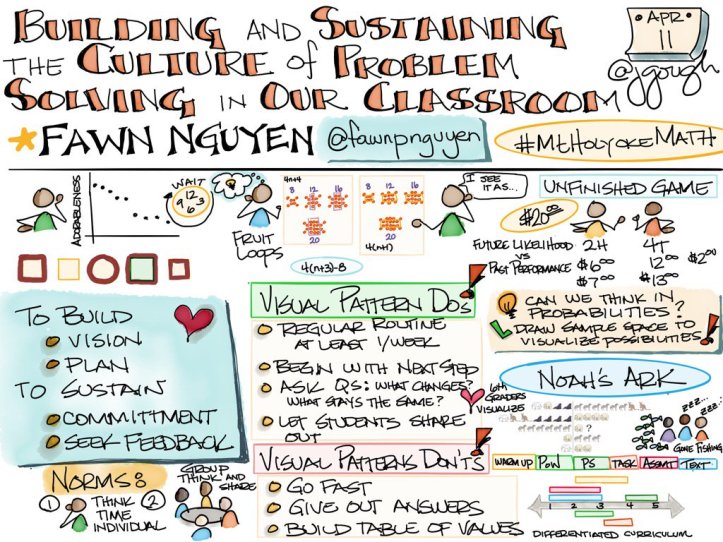 BUILDING AND SUSTAINING
THE CULTURE of PROBLEM
SOLVING IN OUR CLASSROOM
APR
11
@jgough
FAWN NGUYEN
@fawnpnguyen
#MtHolyokeMATH
ADORABLENESS
WAIT
12
9 3
6
FRUIT
LOOPS
4n+4
8 12 16
20
8 12 16
20
4(n+1)
4(n+3)-8
I SEE
IT AS...
UNFINISHED GAME
$20.00
FUTURE LIKELIHOOD
VS
PAST PERFORMANCE
2H 4T
$6.00 12.00 $2.00
$7.00 $13.00
CAN WE THINK IN
PROBABILITIES?
DRAW SAMPLE SPACE TO
VISUALIZE POSSIBILITIES
TO BUILD
VISION
PLAN
TO SUSTAIN
COMMITTMENT
SEEK FEEDBACK
VISUAL PATTERN DO's
REGULAR ROUTINE
AT LEAST 1/WEEK
BEGIN WITH NEXT STEP
ASK QS: WHAT CHANGES?
WHAT STAYS THE SAME?
LET STUDENTS SHARE
OUT
VISUAL PATTERNS DON'TS
GO FAST
GIVE OUT ANSWERS
BUILD TABLE OF VALUES
NORMS:
1 THINK
TIME
INDIVIDUAL
2 GROUP
THINK AND
SHARE
NOAH'S ARK
6th
GRADERS
VISUALIZE
?
ZZZ... ZZZ...
GONE FISHING
WARM UP POW PS TASK ASSMT TEXT
1 2 3 4 5
DIFFERENTIATED CURRICULUM